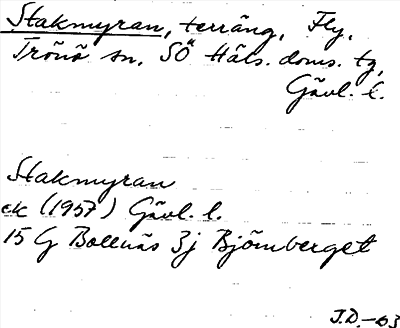 Stakmyran, terräng, Fly,
Trönö sn. SÖ Häls. doms. tg,
Gävl. l.
Stakmyran
ek (1957) Gävl. l.
15 G Bollnäs 3j Björnberget
J.D.-63